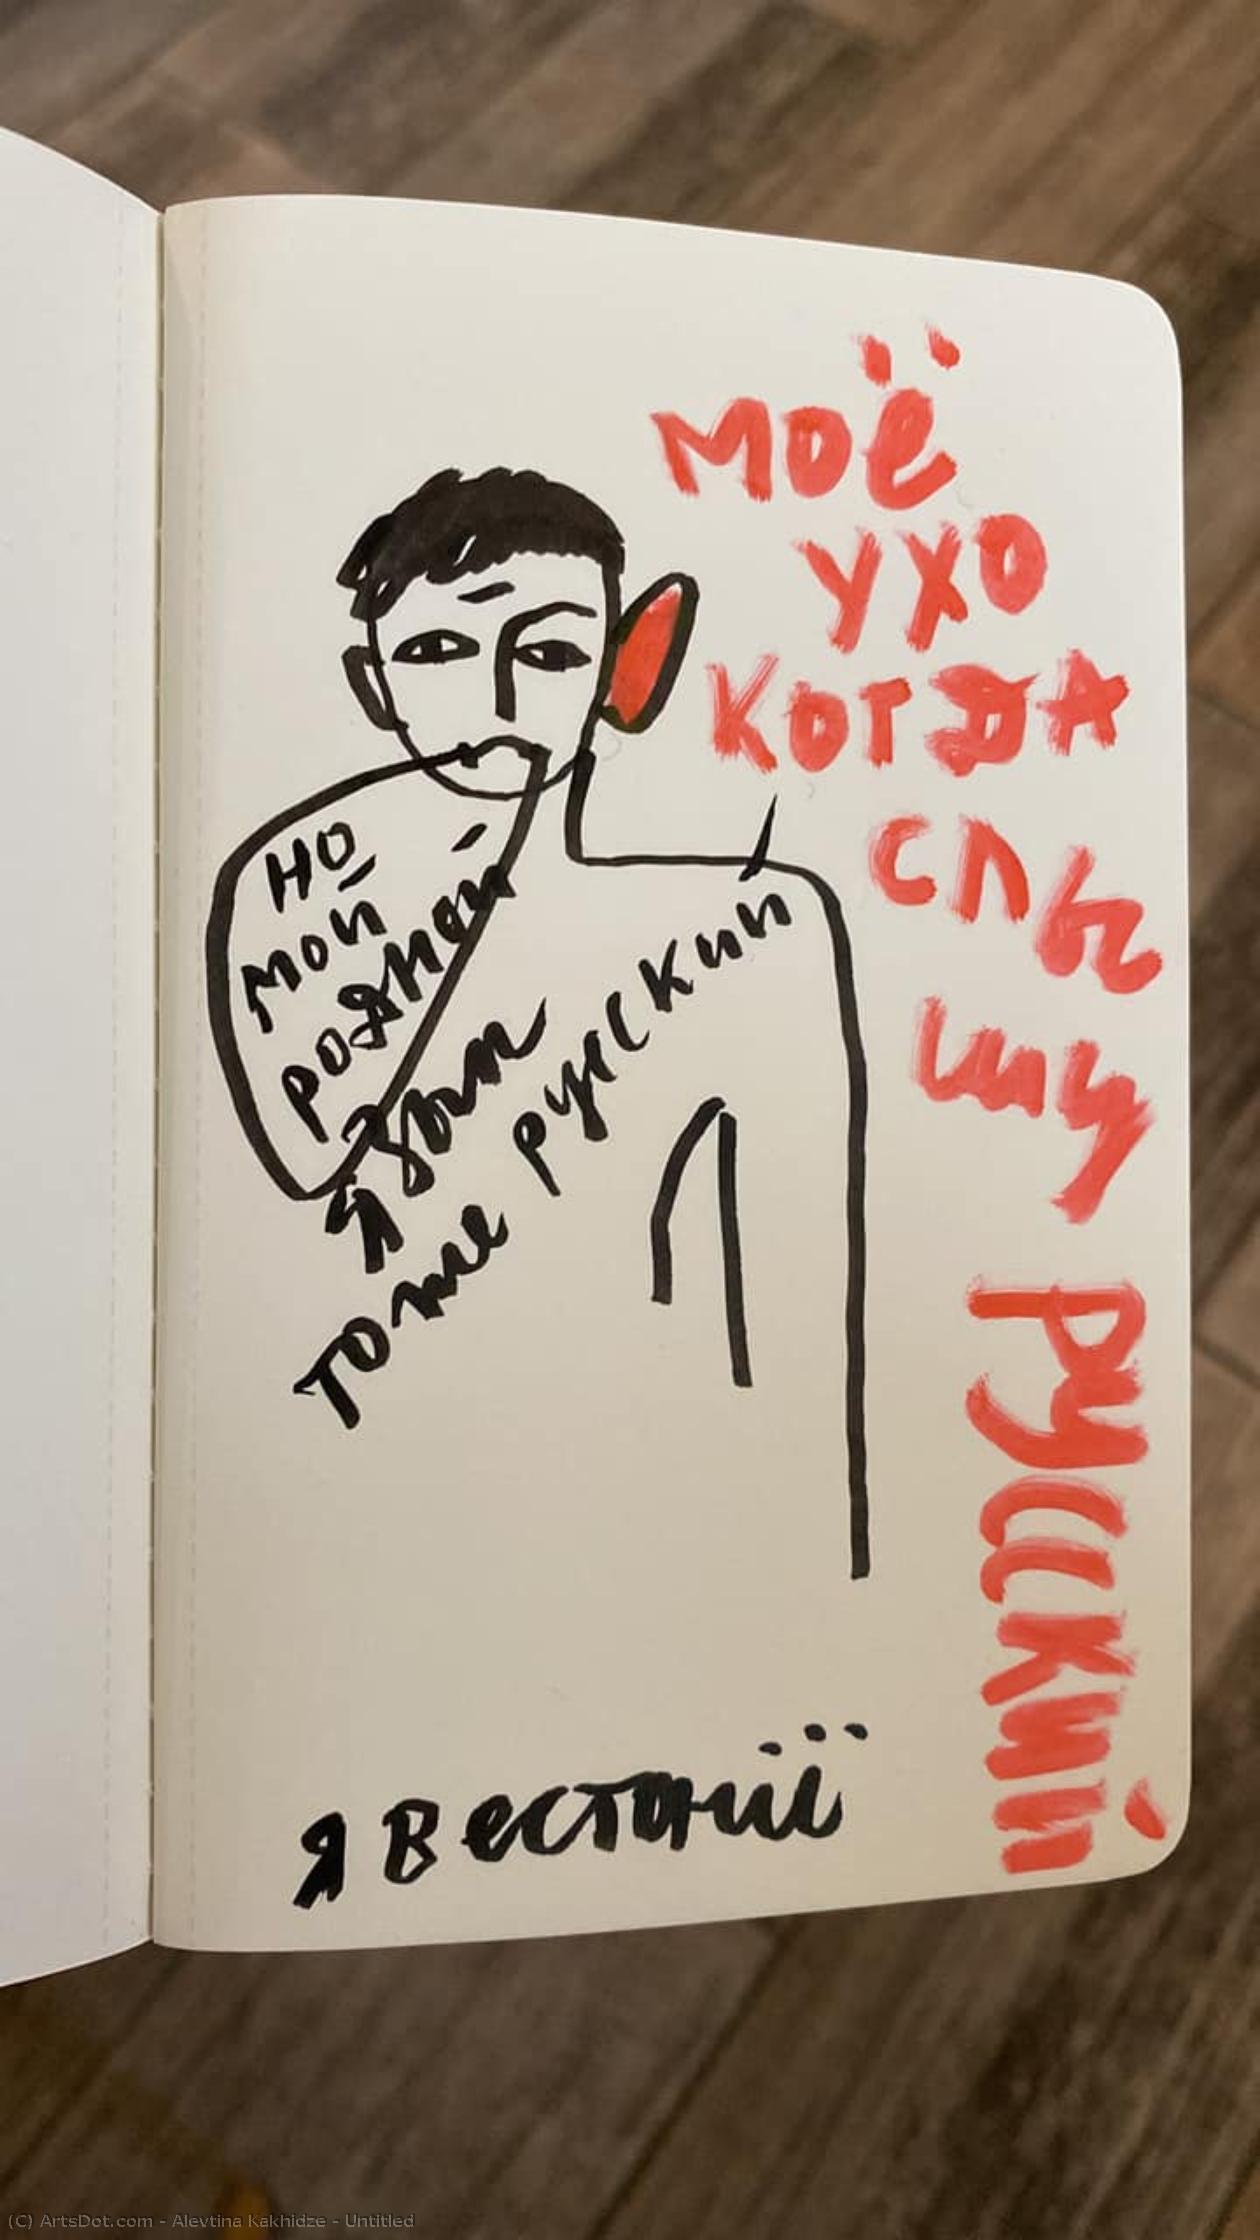 моё
ухо
когда
слы
шу
русский
но
мой
родной
язык
тоже руский
я в естонії
(C) ArtsDot.com - Alevtina Kakhidze - Untitled